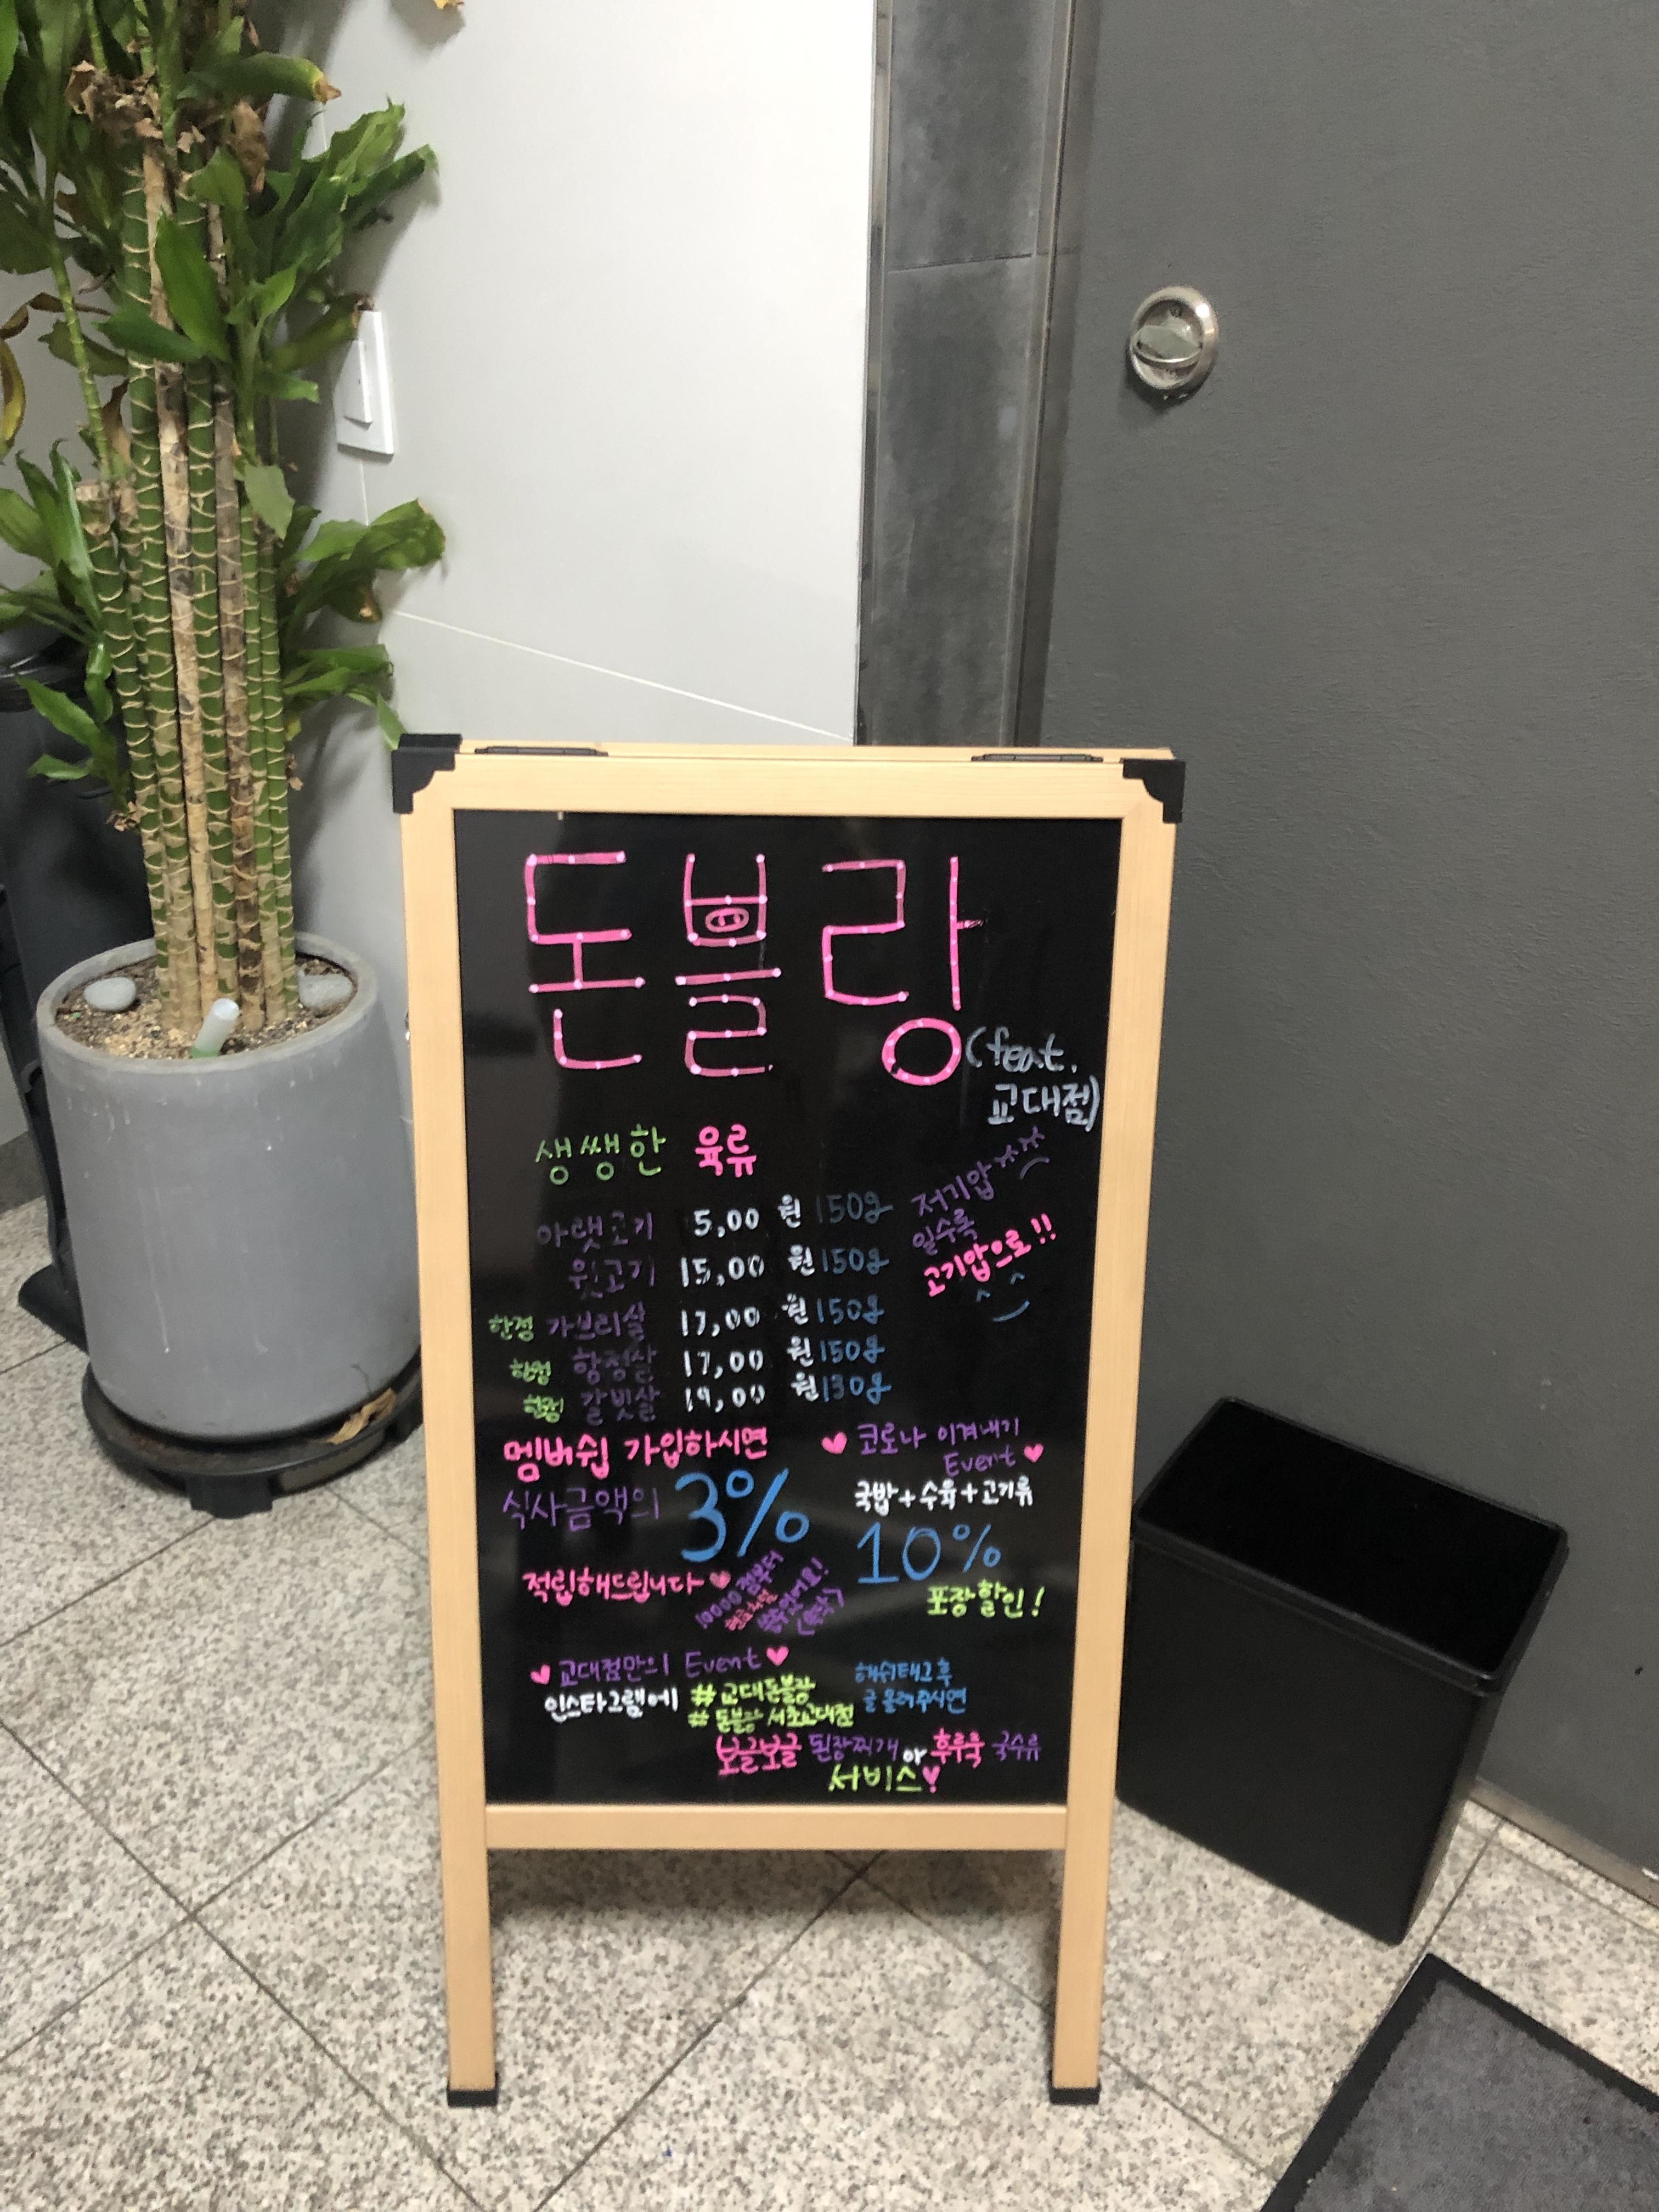 돈블랑
(feat.
교대점)
생쌩한 육류
저기압
일수록
고기압으로!!
아랫고기 5,00 원 150g
윗고기 15,00 원 150g
한정 가브리살 17,00 원 150g
한정 항정살 17,00 원 150g
한정 갈빗살 19,00 원 130g
멤버쉽 가입하시면
식사금액의 3%
적립해드립니다♥
10000점부터
♥ 코로나 이겨내기
Event ♥
국밥+수육+고기류
10%
포장할인!
♥교대점만의 Event♥
인스타그램에 #교대돈블랑
#돈블랑 서초교대점
해쉬태그후
글올려주시면
보글보글 된장찌개 or 후루룩 국수류
서비스♥